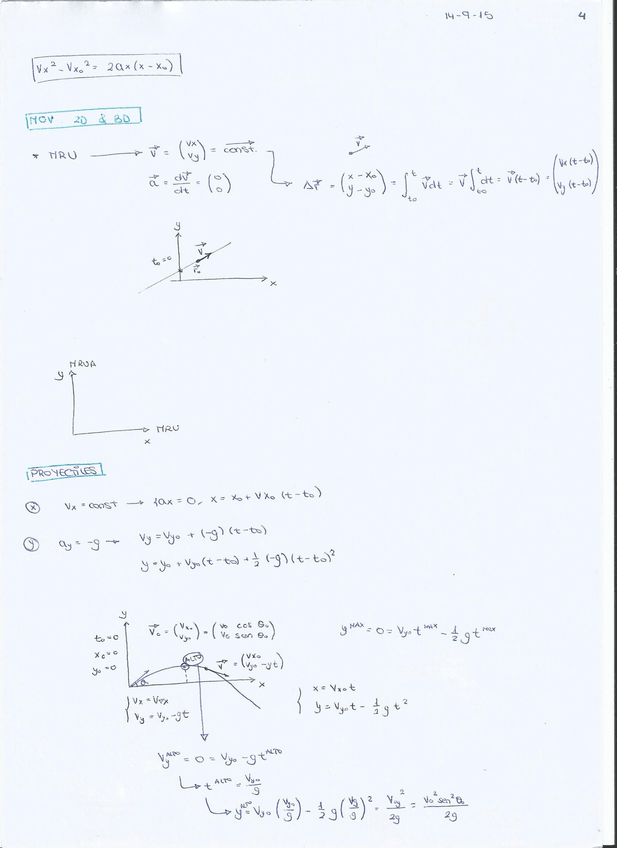 14-9-15 4
Vx² - Vx₀² = 2ax(x - x₀)
MOV 2D & 3D
* MRU → v⃗ = (Vx Vy) = const.
a⃗ = dv⃗/dt = (0 0)
Δr⃗ = (x - x₀ y - y₀) = ∫_{t₀}^{t} v⃗dt = v⃗ ∫_{t₀}^{t} dt = v⃗(t-t₀) = (Vx(t-t₀) Vy(t-t₀))
v⃗
y
v⃗
t₀=0
r⃗₀
x
MRUA
y
MRU
x
PROYECTILES
ⓧ Vx = const → ax = 0, x = x₀ + Vx₀ (t-t₀)
ⓨ ay = -g → Vy = Vy₀ + (-g)(t-t₀)
y = y₀ + Vy₀(t-t₀) + ½(-g)(t-t₀)²
y
t₀=0
x₀=0
y₀=0
v⃗₀ = (Vx₀ Vy₀) = (V₀ cos θ₀ V₀ sen θ₀)
ALTO
v⃗ = (Vx₀ Vy₀-gt)
x
Vy = Vy₀ - gt
y^MAX = 0 = Vy₀ t^max - ½ g t^max
x = Vx₀t
y = Vy₀t - ½ g t²
Vy^ALTO = 0 = Vy₀ - g t^ALTO
t^ALTO = Vy₀/g
y^ALTO = Vy₀ (Vy₀/g) - ½ g (Vy/g)² = Vy²/2g = V₀² sen² θ₀/2g